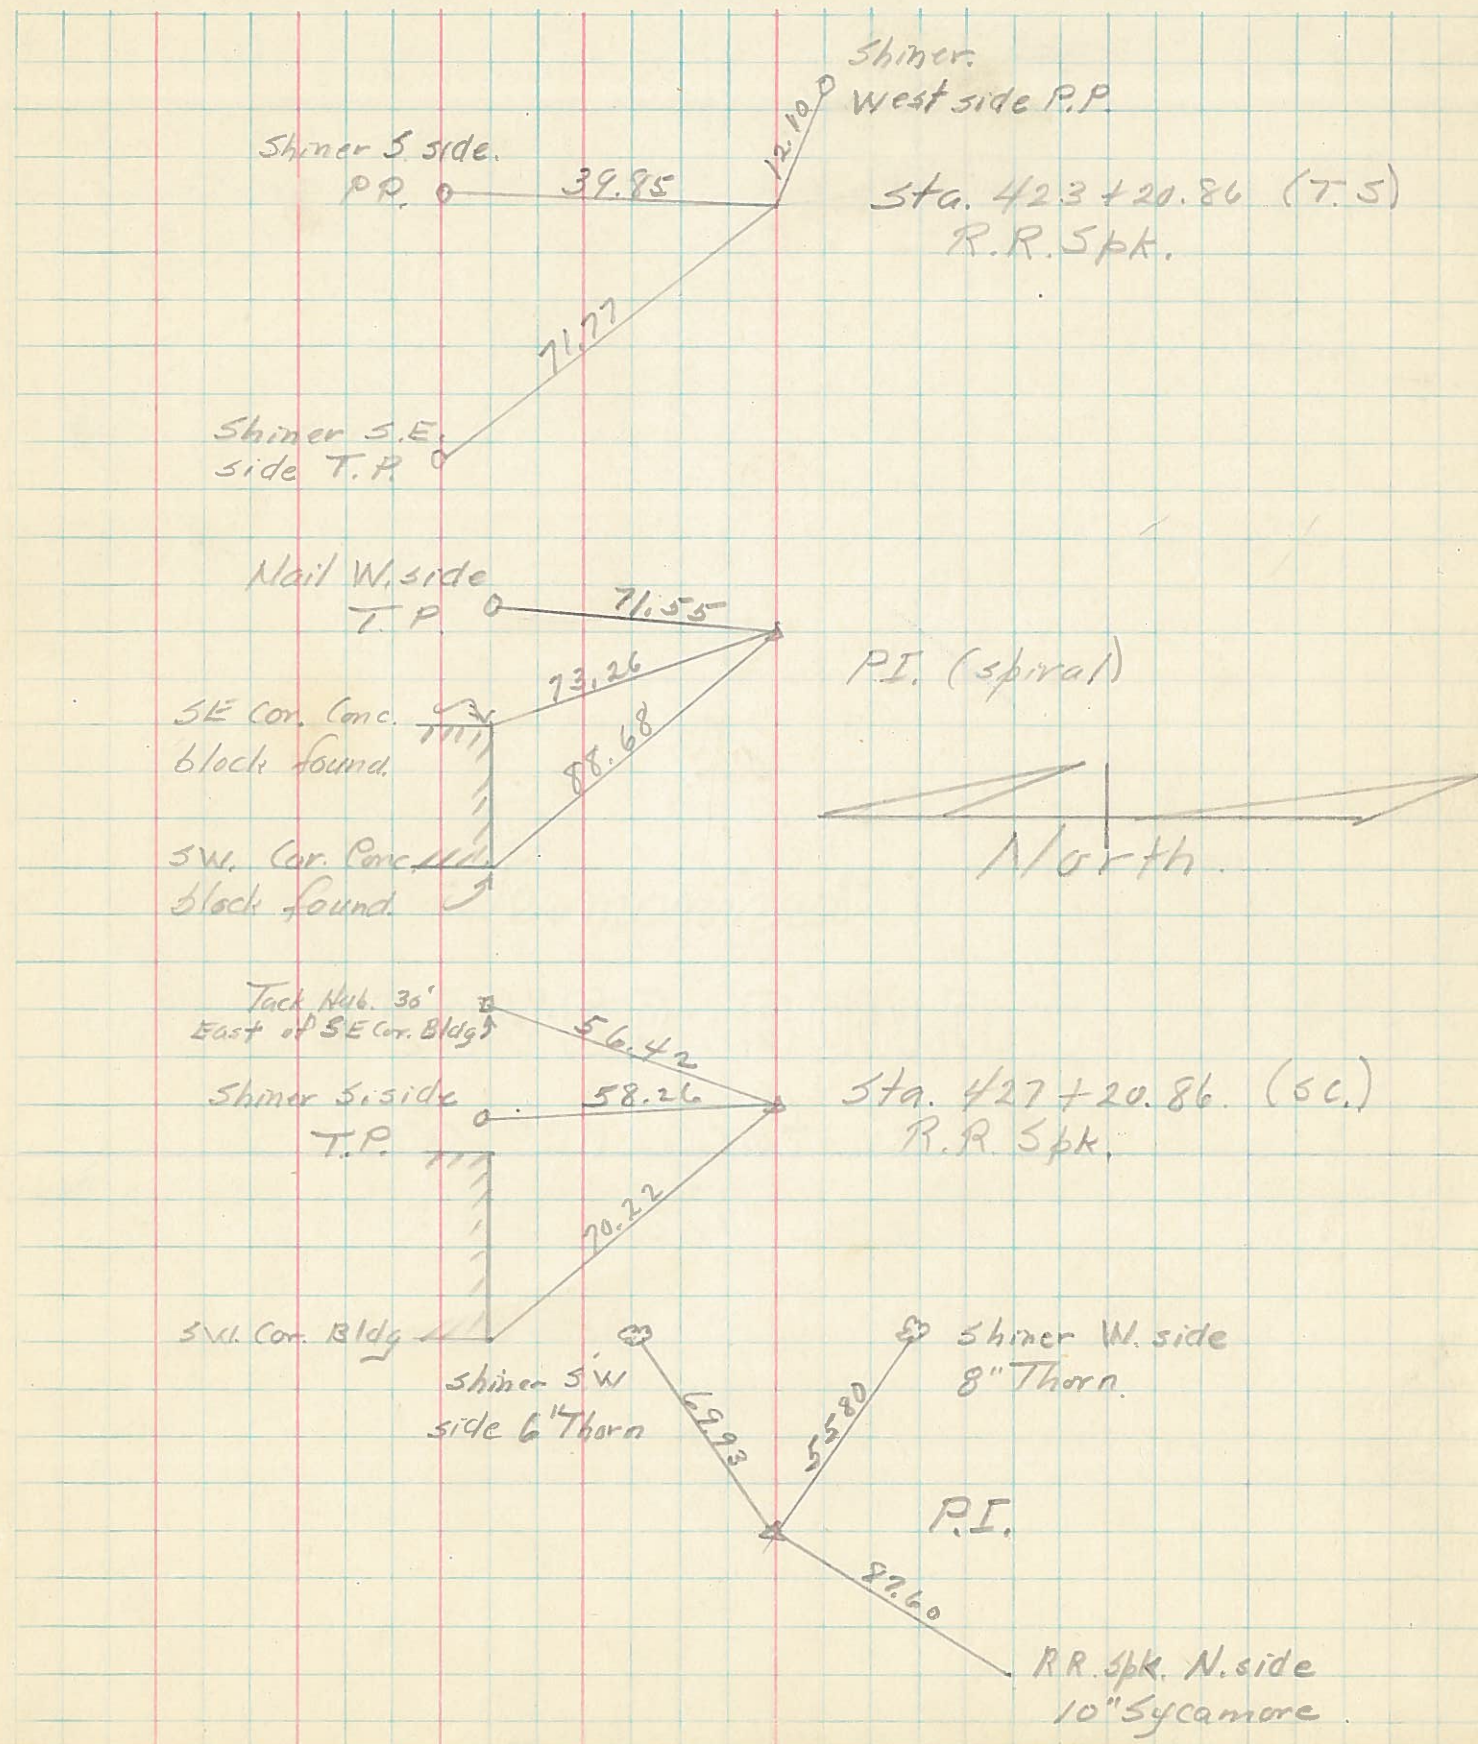 Shiner.
West side P.P.
12.10
Shiner S. side.
P.P.
39.85
Sta. 423+20.86 (T.S)
R.R. Spk.
71.77
Shiner S.E.
side T.P.
Nail W. side
T.P.
71.55
P.I. (spiral)
73.26
SE Cor. Conc.
block found.
88.68
SW. Cor. Conc
block found.
North.
Tack Hub. 30'
East of SE Cor. Bldg
56.42
Shiner S. side
T.P.
58.26
Sta. 427+20.86. (SC.)
R.R Spk.
70.22
SW. Cor. Bldg
Shiner SW
side 6" Thorn
69.93
55.80
Shiner W. side
8" Thorn.
P.I.
87.60
RR. spk. N. side
10" Sycamore.